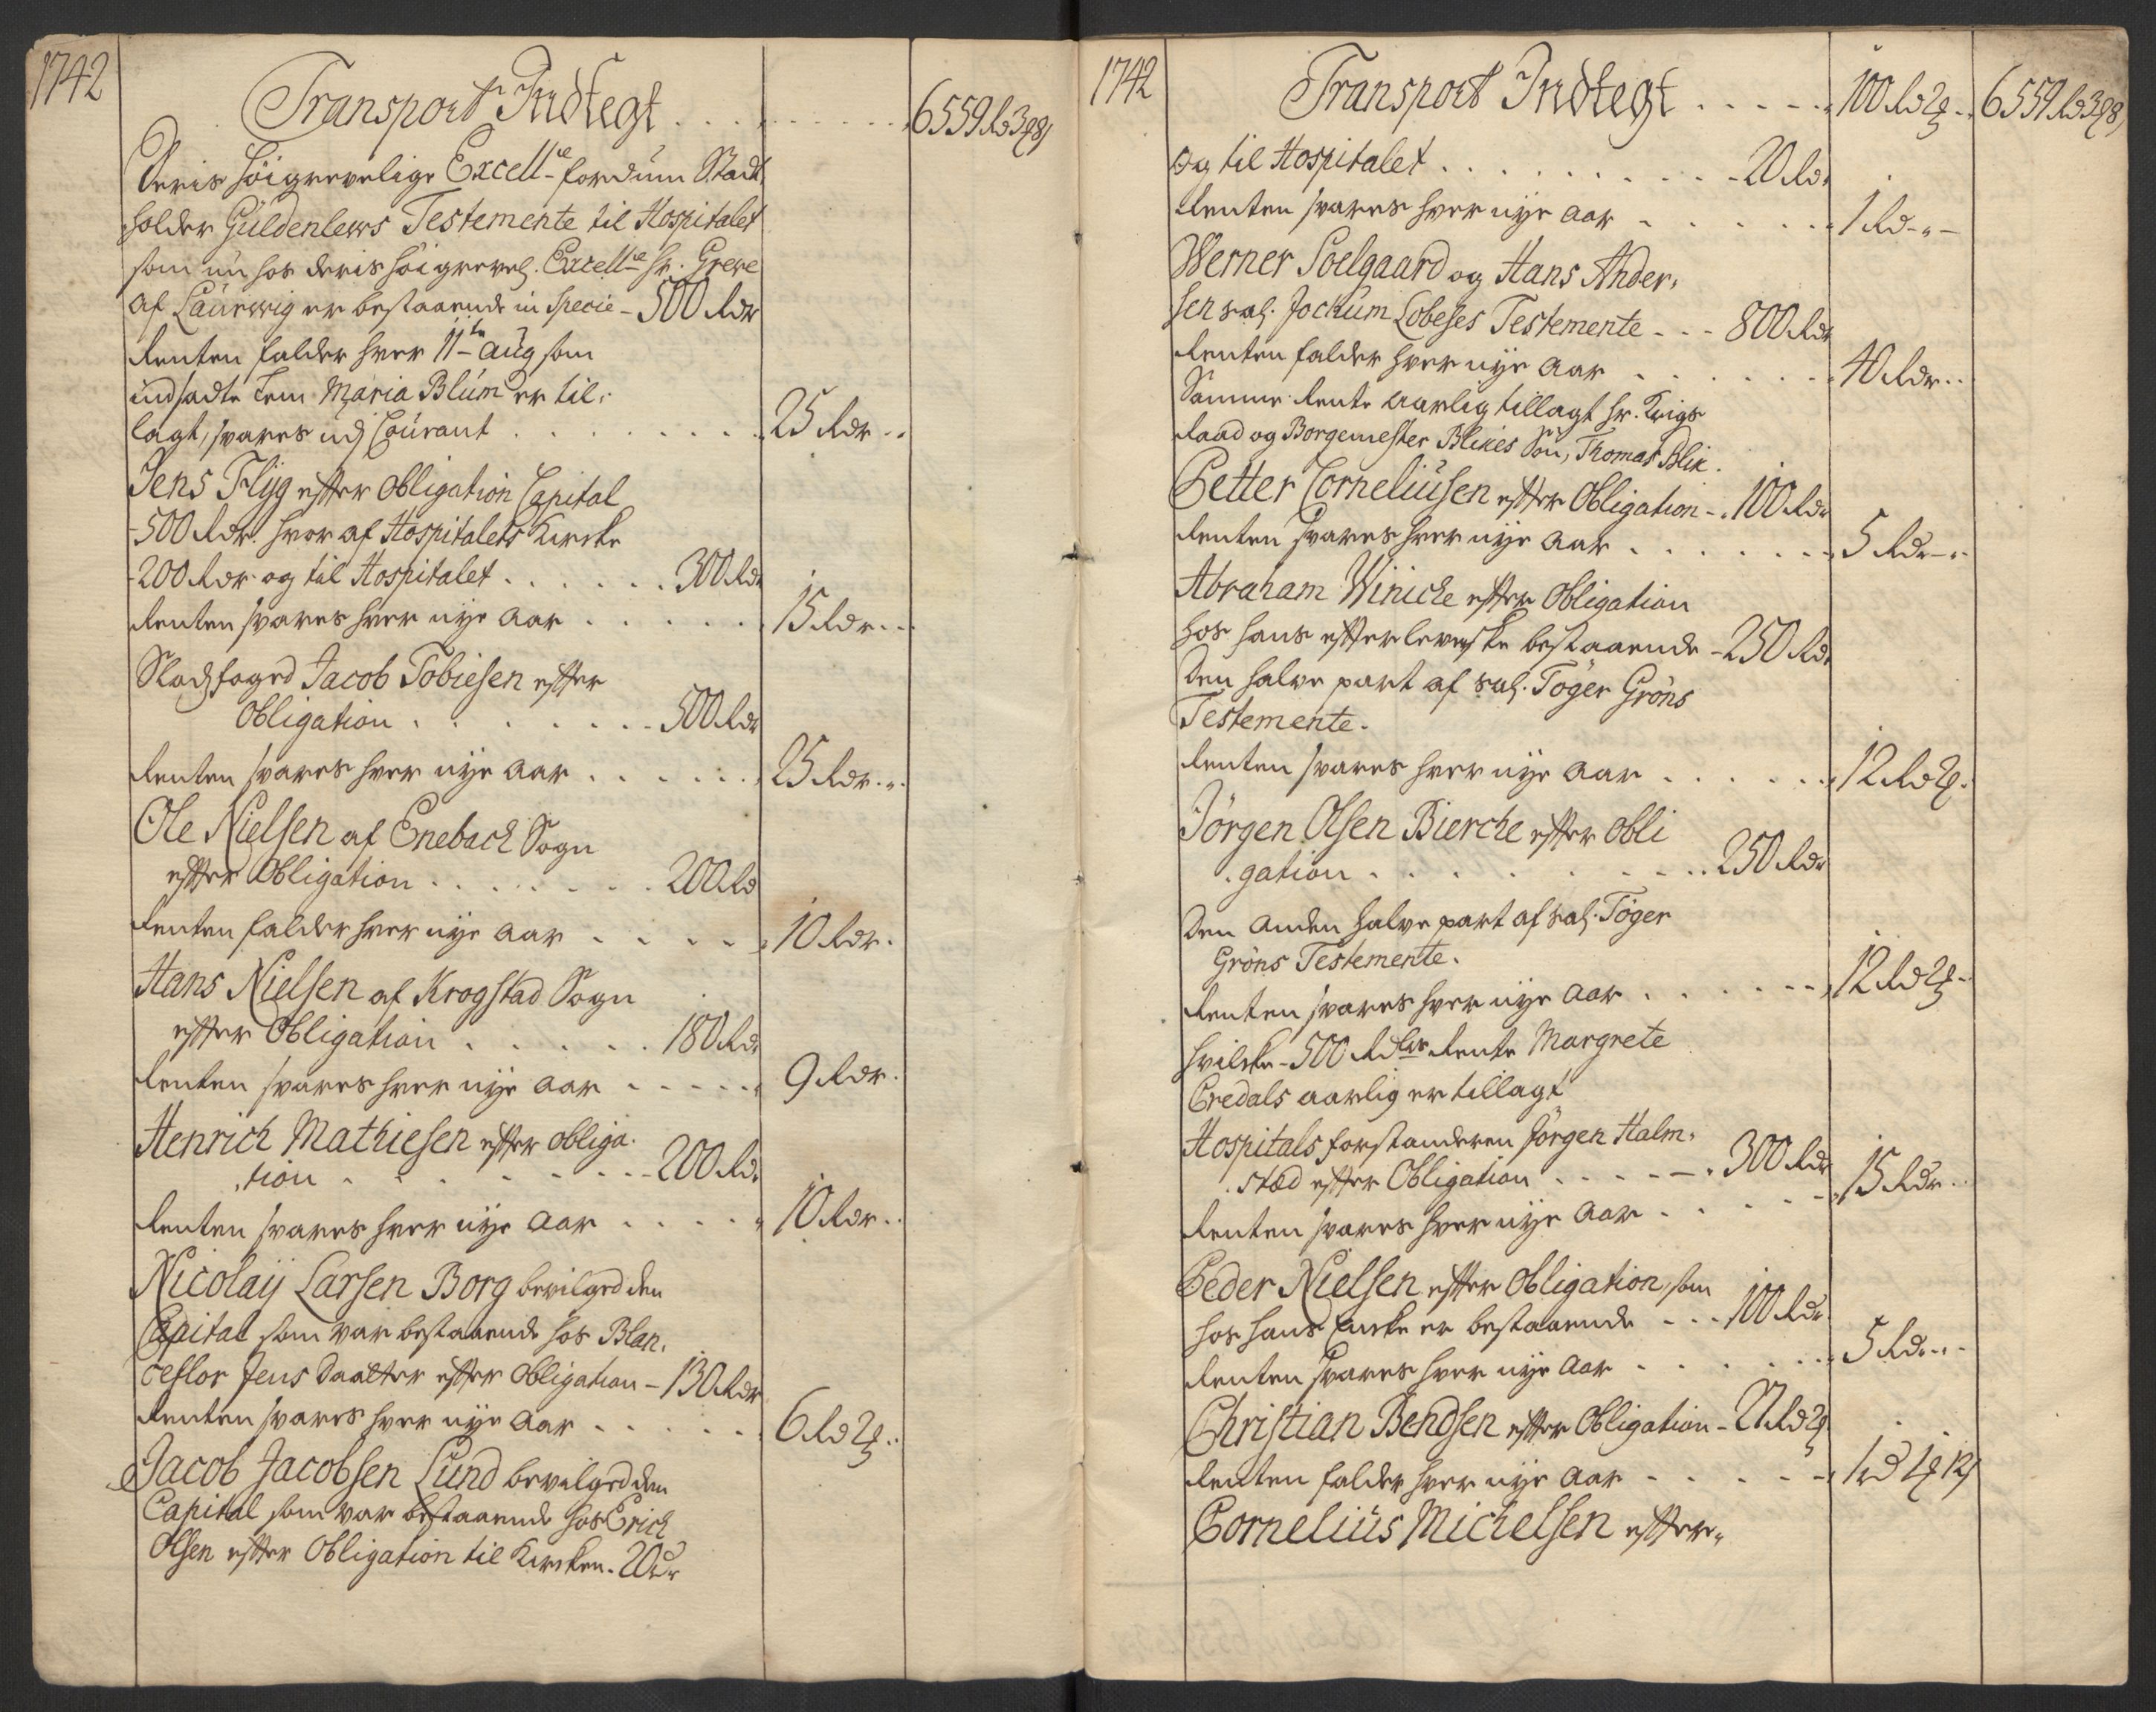 1742
Transport Indtegt . . . . . . . . . 6559 Rd 3 ℳ 8 s
Deris Höigrevelige Excell:ce fordum Stadt,
holder Güldenlews Testemente til Hospitalet
som nu hos deris höigrevel. Excell:ce Hr. Greve
af Laurwig er bestaaende in Specie - 500 Rdr
Renten falder hver 11te Aug som
indsadte Lem Maria Blüm er til,
lagt, svares udj Courant . . . . . . . 25 Rdr - .
Jens Flyg efter Obligation Capital
- 500 Rdr. hvor af Hospitalets Kircke
- 200 Rdr og til Hospitalet . . . . . . 300 Rdr
Renten svares hver nye Aar . . . . . . 15 Rdr - .
Stadsfoged Jacob Tobiesen efter
Obligation . . . . . . . 500 Rdr
Renten svares hver nye Aar . . . . . . 25 Rdr - .
Ole Nielsen af Enebach Sogn
efter Obligation . . . . . . . 200 Rd
Renten falder hver nye Aar . . . . . 10 Rdr .
Hans Nielsen af Krogstad Sogn
efter Obligation . . . . . 180 Rdr
Renten svares hver nye Aar - - - - - 9 Rdr .
Henrich Mathiesen efter obliga,
,tion . . . . . . - - 200 Rdr
Renten svares hver nye Aar . . . . . 10 Rdr . .
Nicolaij Larsen Borg bevilged den
Capital som var bestaaende hos Blan,
cheflor Jens Daatter efter Obligation - 130 Rdr
Renten svares hver nye Aar . . . . . . 6 Rd 2 ℳ . .
Jacob Jacobsen Lund bevilged den
Capital som var bestaaende hos Erich
Olsen efter Obligation til Kircken - 20 rdr
1742
Transport Indtegt . . . . - - 100 Rd 2 ℳ - . 6559 Rd 3 ℳ 8 s
og til Hospitalet . . . . . . . . . - 20 Rdr
Renten svares hver nye Aar . . . . . . 1 Rd - " -
Werner Soelgaard og Hans Ander,
sen sal. Jochum Lobeses Testemente - - - 800 Rdr
Renten falder hver nye Aar . . . . . . 40 Rdr . .
Samme Rente Aarlig tillagt Hr. Krigs
Raad og Borgemester Blikes Sön, Thomas Blik .
Petter Corneliusen efter Obligation - . 100 Rdr
Renten svares hver nye Aar . . . . . . . 5 Rdr - " -
Abraham Winicke efter Obligation
hos hans efterleverske bestaaende - 250 Rdr
Den halve part af sal. Töger Gröns
Testemente .
Renten svares hver nye Aar . . . . . . 12 Rd 2 ℳ .
Jörgen Olsen Bierche efter Obli
. gation . . . . . . . . . 250 Rdr
Den anden halve part af sal. Töger
Gröns Testemente .
Renten svares hver nye Aar . . . . . - - 12 Rd 2 ℳ - -
hvilcke - 500 Rdlrs Rente Margrete
Credals aarlig er tillagt
Hospitals forstanderen Jörgen Halm,
. stæd efter Obligation . . . . - - . 300 Rdr
Renten svares hver nye Aar . . . . - - 15 Rdr . .
Peder Nielsen efter Obligation, som
hos hans Encke er bestaaende - - - 100 Rdr
Renten svares hver nye Aar . . . . . . . 5 Rdr . " -
Christian Bendsen efter Obligation - 27 Rd 2 ℳ
Renten falder hver nye Aar - . . . - - 1 rd 1 ℳ 12 s
Cornelius Michelsen efter "